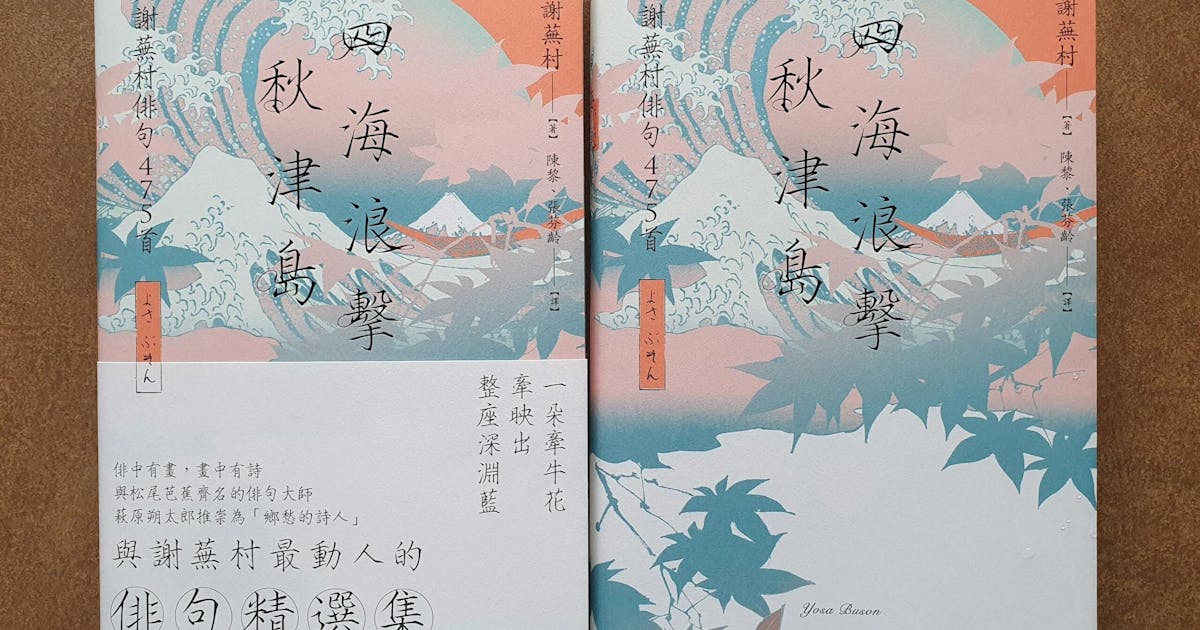 四海浪擊
秋津島
謝蕪村俳句475首
よさぶそん
謝蕪村
【著】
陳黎、張芬齡
【譯】
一朵牽牛花
牽映出
整座深淵藍
俳中有畫，畫中有詩
與松尾芭蕉齊名的俳句大師
萩原朔太郎推崇為「鄉愁的詩人」
與謝蕪村最動人的
俳句精選集
謝蕪村
【著】
陳黎、張芬齡
【譯】
四海浪擊
秋津島
謝蕪村俳句475首
よさぶそん
Yosa Buson